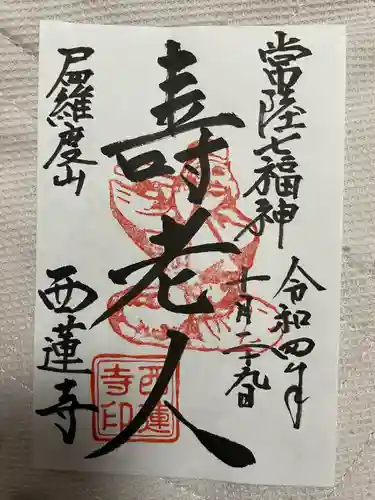 常陸七福神
令和四年
十月二十九日
寿老人
尸羅度山
西蓮寺
西蓮
寺印